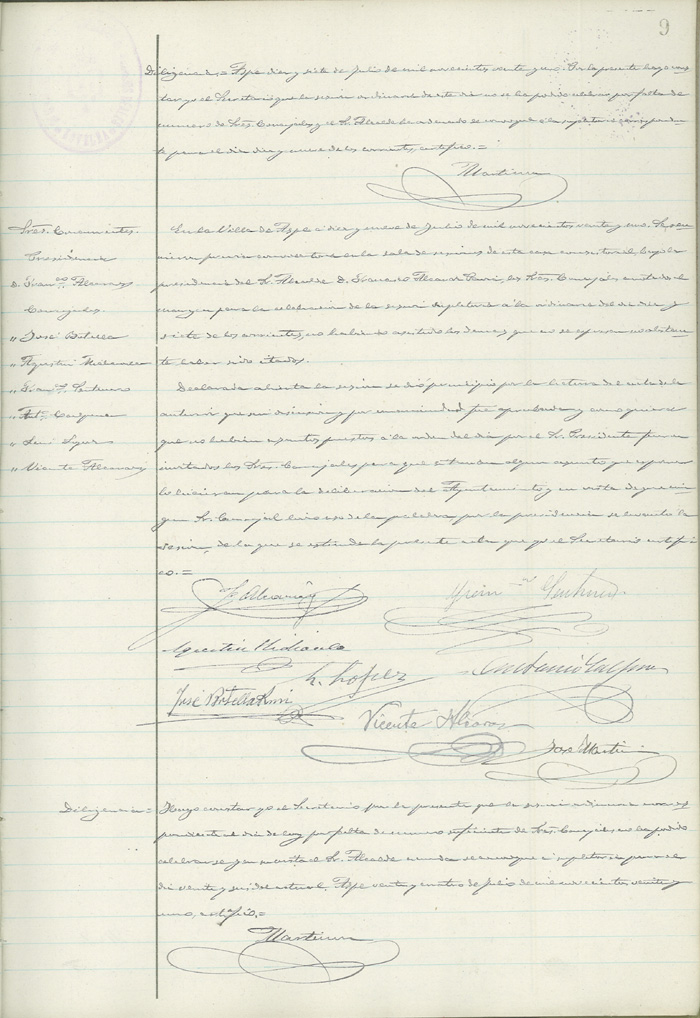 9
Diligencia = Aspe diez y siete de Julio de mil novecientos veinte y uno. Por la presente hago cons-
tar yo el Secretario que la sesión ordinaria de este día no se ha podido celebrar por falta de
número de Sres. Concejales y el Sr. Alcalde ha ordenado se convoque a la supletoria
para el día diez y nueve de los corrientes, certifico. =
Martinez
Sres. Concurrentes.
Presidencia
D. Franco Alcaraz
Concejales.
" José Botella
" Agustín
" Franco
" Anto
" Luis
" Vicente Alcaraz
En la Villa de Aspe a diez y nueve de Julio de mil novecientos veinte y uno. Se reu-
nieron previa convocatoria en la sala de sesiones de esta casa consistorial, bajo la
presidencia del Sr. Alcalde D. Francisco Alcaraz, los Sres. Concejales anotados al
margen para la celebración de la sesión supletoria á la ordinaria del día diez y
siete de los corrientes, no habiendo asistido los demás que no se expresan no obstan-
te haber sido citados.
Declarada abierta la sesión se dió principio por la lectura del acta de la
anterior que sin discusión y por unanimidad fué aprobada y como quiera
que no habían asuntos puestos á la orden del día por el Sr. Presidente fueron
invitados los Sres. Concejales para que si tenían algun asunto que exponer
lo hicieran para la deliberación del Ayuntamiento y en vista de que nin-
gun Sr. Concejal hizo uso de la palabra por la presidencia se levantó la
sesión, de la que se extiende la presente acta que yo el Secretario certifi-
co. =
F. Alcaraz
Agustin
L. Lopez
Antonio
José Botella
Vicente Alcaraz
José Martinez
Diligencia = Hago constar yo el Secretario por la presente que la sesión ordinaria corres-
pondiente al día de hoy por falta de número suficiente de Sres. Concejales no ha podido
celebrarse y en su vista el Sr. Alcalde se convoque a supletoria para el
día veinte y seis del actual. Aspe veinte y cuatro de Julio de mil novecientos veinte y
uno, certifico. =
Martinez